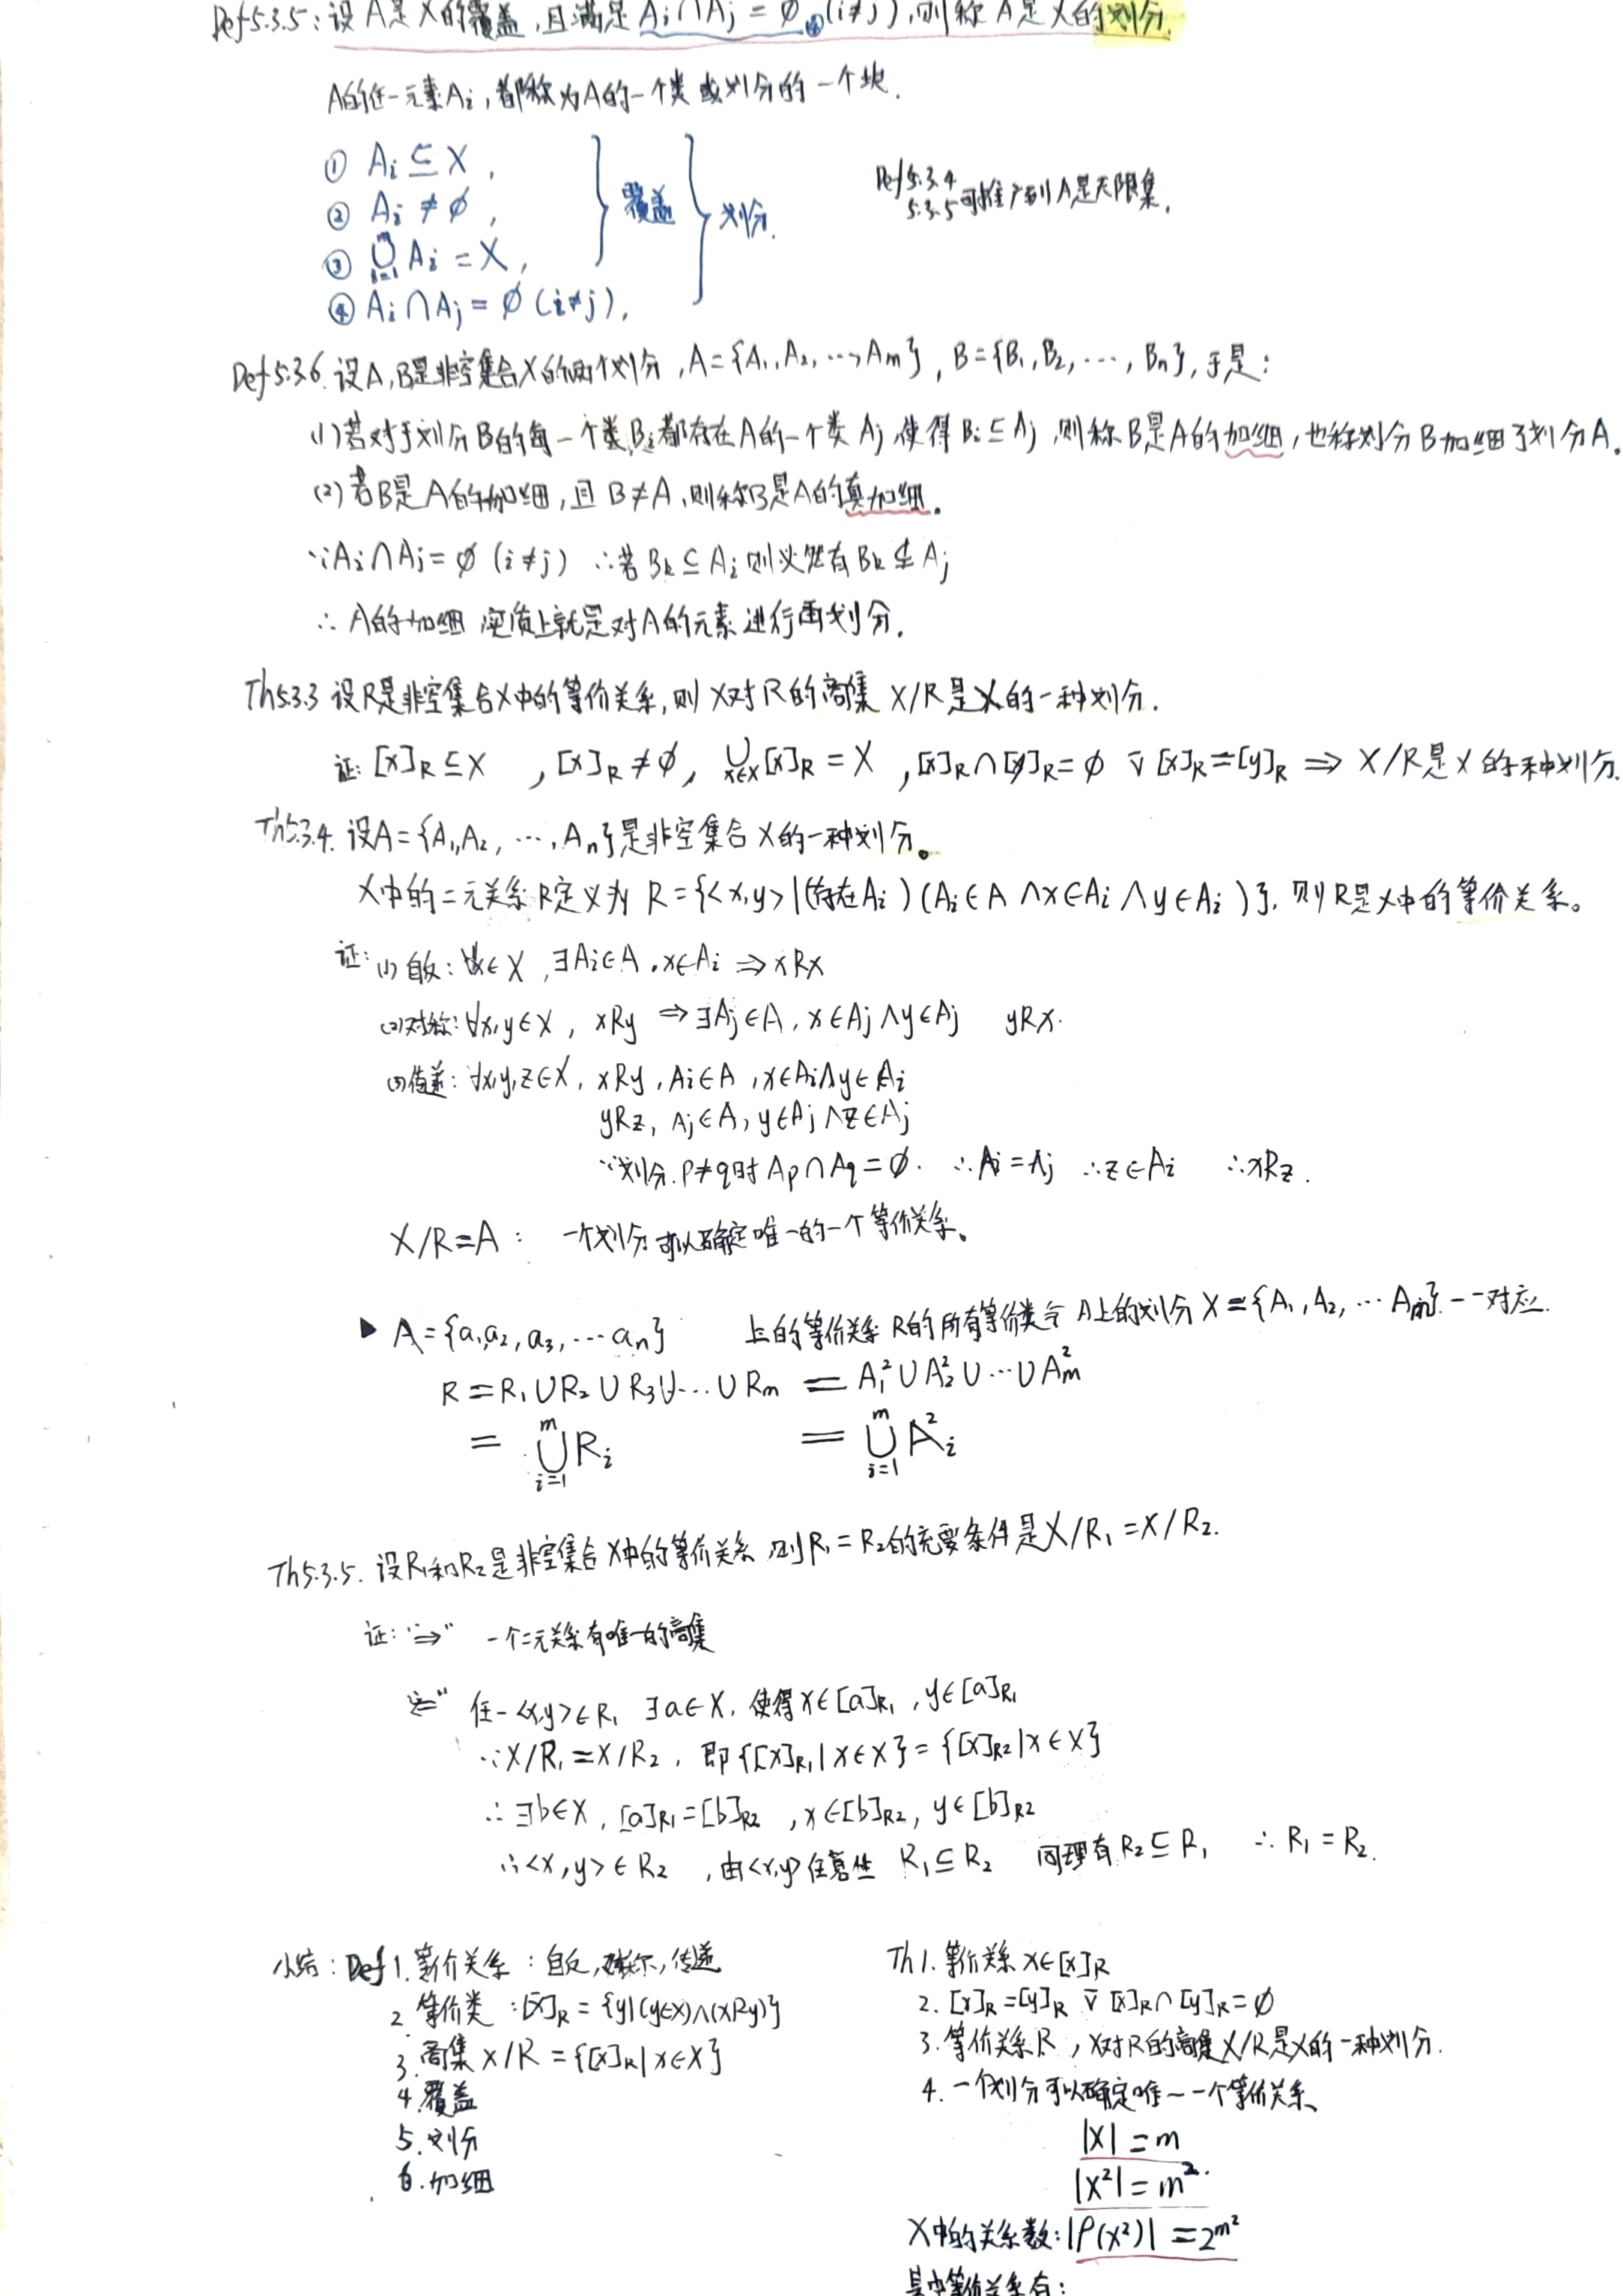 Def5.3.5：设A是X的覆盖，且满足 Ai∩Aj = ∅ ④ (i≠j)，则称A是X的划分.
A的任一元素Ai，都称为A的一个类或划分的一个块.
① Ai ⊆ X，
② Ai ≠ ∅，
③ ⋃_{i=1}^{m} Ai = X，
④ Ai∩Aj = ∅ (i≠j)，
覆盖
划分.
Def5.3.4
5.3.5可推广到A是无限集.
Def5.3.6. 设A，B是非空集合X的两个划分，A={A₁,A₂,…,Am}，B={B₁,B₂,…,Bn}，于是：
(1)若对于划分B的每一个类Bi都存在A的一个类Aj，使得Bi⊆Aj，则称B是A的加细，也称划分B加细了划分A.
(2)若B是A的加细，且B≠A，则称B是A的真加细。
∵Ai∩Aj=∅ (i≠j) ∴若Bk⊆Ai则必然有Bk⊈Aj
∴A的加细实质上就是对A的元素进行再划分.
Th5.3.3 设R是非空集合X中的等价关系，则X对R的商集X/R是X的一种划分.
证: [x]R⊆X ，[x]R≠∅，⋃_{x∈X}[x]R = X ，[x]R∩[y]R=∅ ⊽ [x]R=[y]R ⇒ X/R是X的一种划分.
Th5.3.4. 设A={A₁,A₂,…,An}是非空集合X的一种划分。
X中的二元关系R定义为 R={<x,y>|(存在Ai)(Ai∈A∧x∈Ai∧y∈Ai)}，则R是X中的等价关系。
证：(1)自反：∀x∈X，∃Ai∈A，x∈Ai ⇒ xRx
(2)对称：∀x,y∈X，xRy ⇒ ∃Aj∈A，x∈Aj∧y∈Aj yRx.
(3)传递：∀x,y,z∈X，xRy，Ai∈A，x∈Ai∧y∈Ai
yRz，Aj∈A，y∈Aj∧z∈Aj
∵划分.P≠q时 Ap∩Aq=∅. ∴Ai=Aj ∴z∈Ai ∴xRz.
X/R=A： 一个划分可以确定唯一的一个等价关系。
▶ A={a₁,a₂,a₃,…an} 上的等价关系R的所有等价类与A上的划分X={A₁,A₂,…Am}一一对应.
R=R₁∪R₂∪R₃∪…∪Rm = A₁²∪A₂²∪…∪Am²
= ⋃_{i=1}^{m} Ri = ⋃_{i=1}^{m} Ai²
Th5.3.5. 设R₁和R₂是非空集合X中的等价关系，则R₁=R₂的充要条件是X/R₁=X/R₂.
证：“⇒” 一个二元关系有唯一的商集
“⇐” 任一<x,y>∈R₁ ∃a∈X，使得x∈[a]R₁，y∈[a]R₁
∵X/R₁=X/R₂，即{[x]R₁|x∈X}={[x]R₂|x∈X}
∴∃b∈X，[a]R₁=[b]R₂，x∈[b]R₂，y∈[b]R₂
∴<x,y>∈R₂ ，由<x,y>任意性 R₁⊆R₂ 同理有R₂⊆R₁ ∴R₁=R₂.
小结：Def 1. 等价关系：自反，对称，传递
2. 等价类：[x]R={y|(y∈X)∧(xRy)}
3. 商集 X/R={[x]R|x∈X}
4. 覆盖
5. 划分
6. 加细
Th 1. 等价关系 x∈[x]R
2. [x]R=[y]R ⊽ [x]R∩[y]R=∅
3. 等价关系R，X对R的商集X/R是X的一种划分.
4. 一个划分可以确定唯一一个等价关系
|X|=m
|X²|=m².
X中的关系数：|P(X²)|=2^{m²}
其中等价关系有：